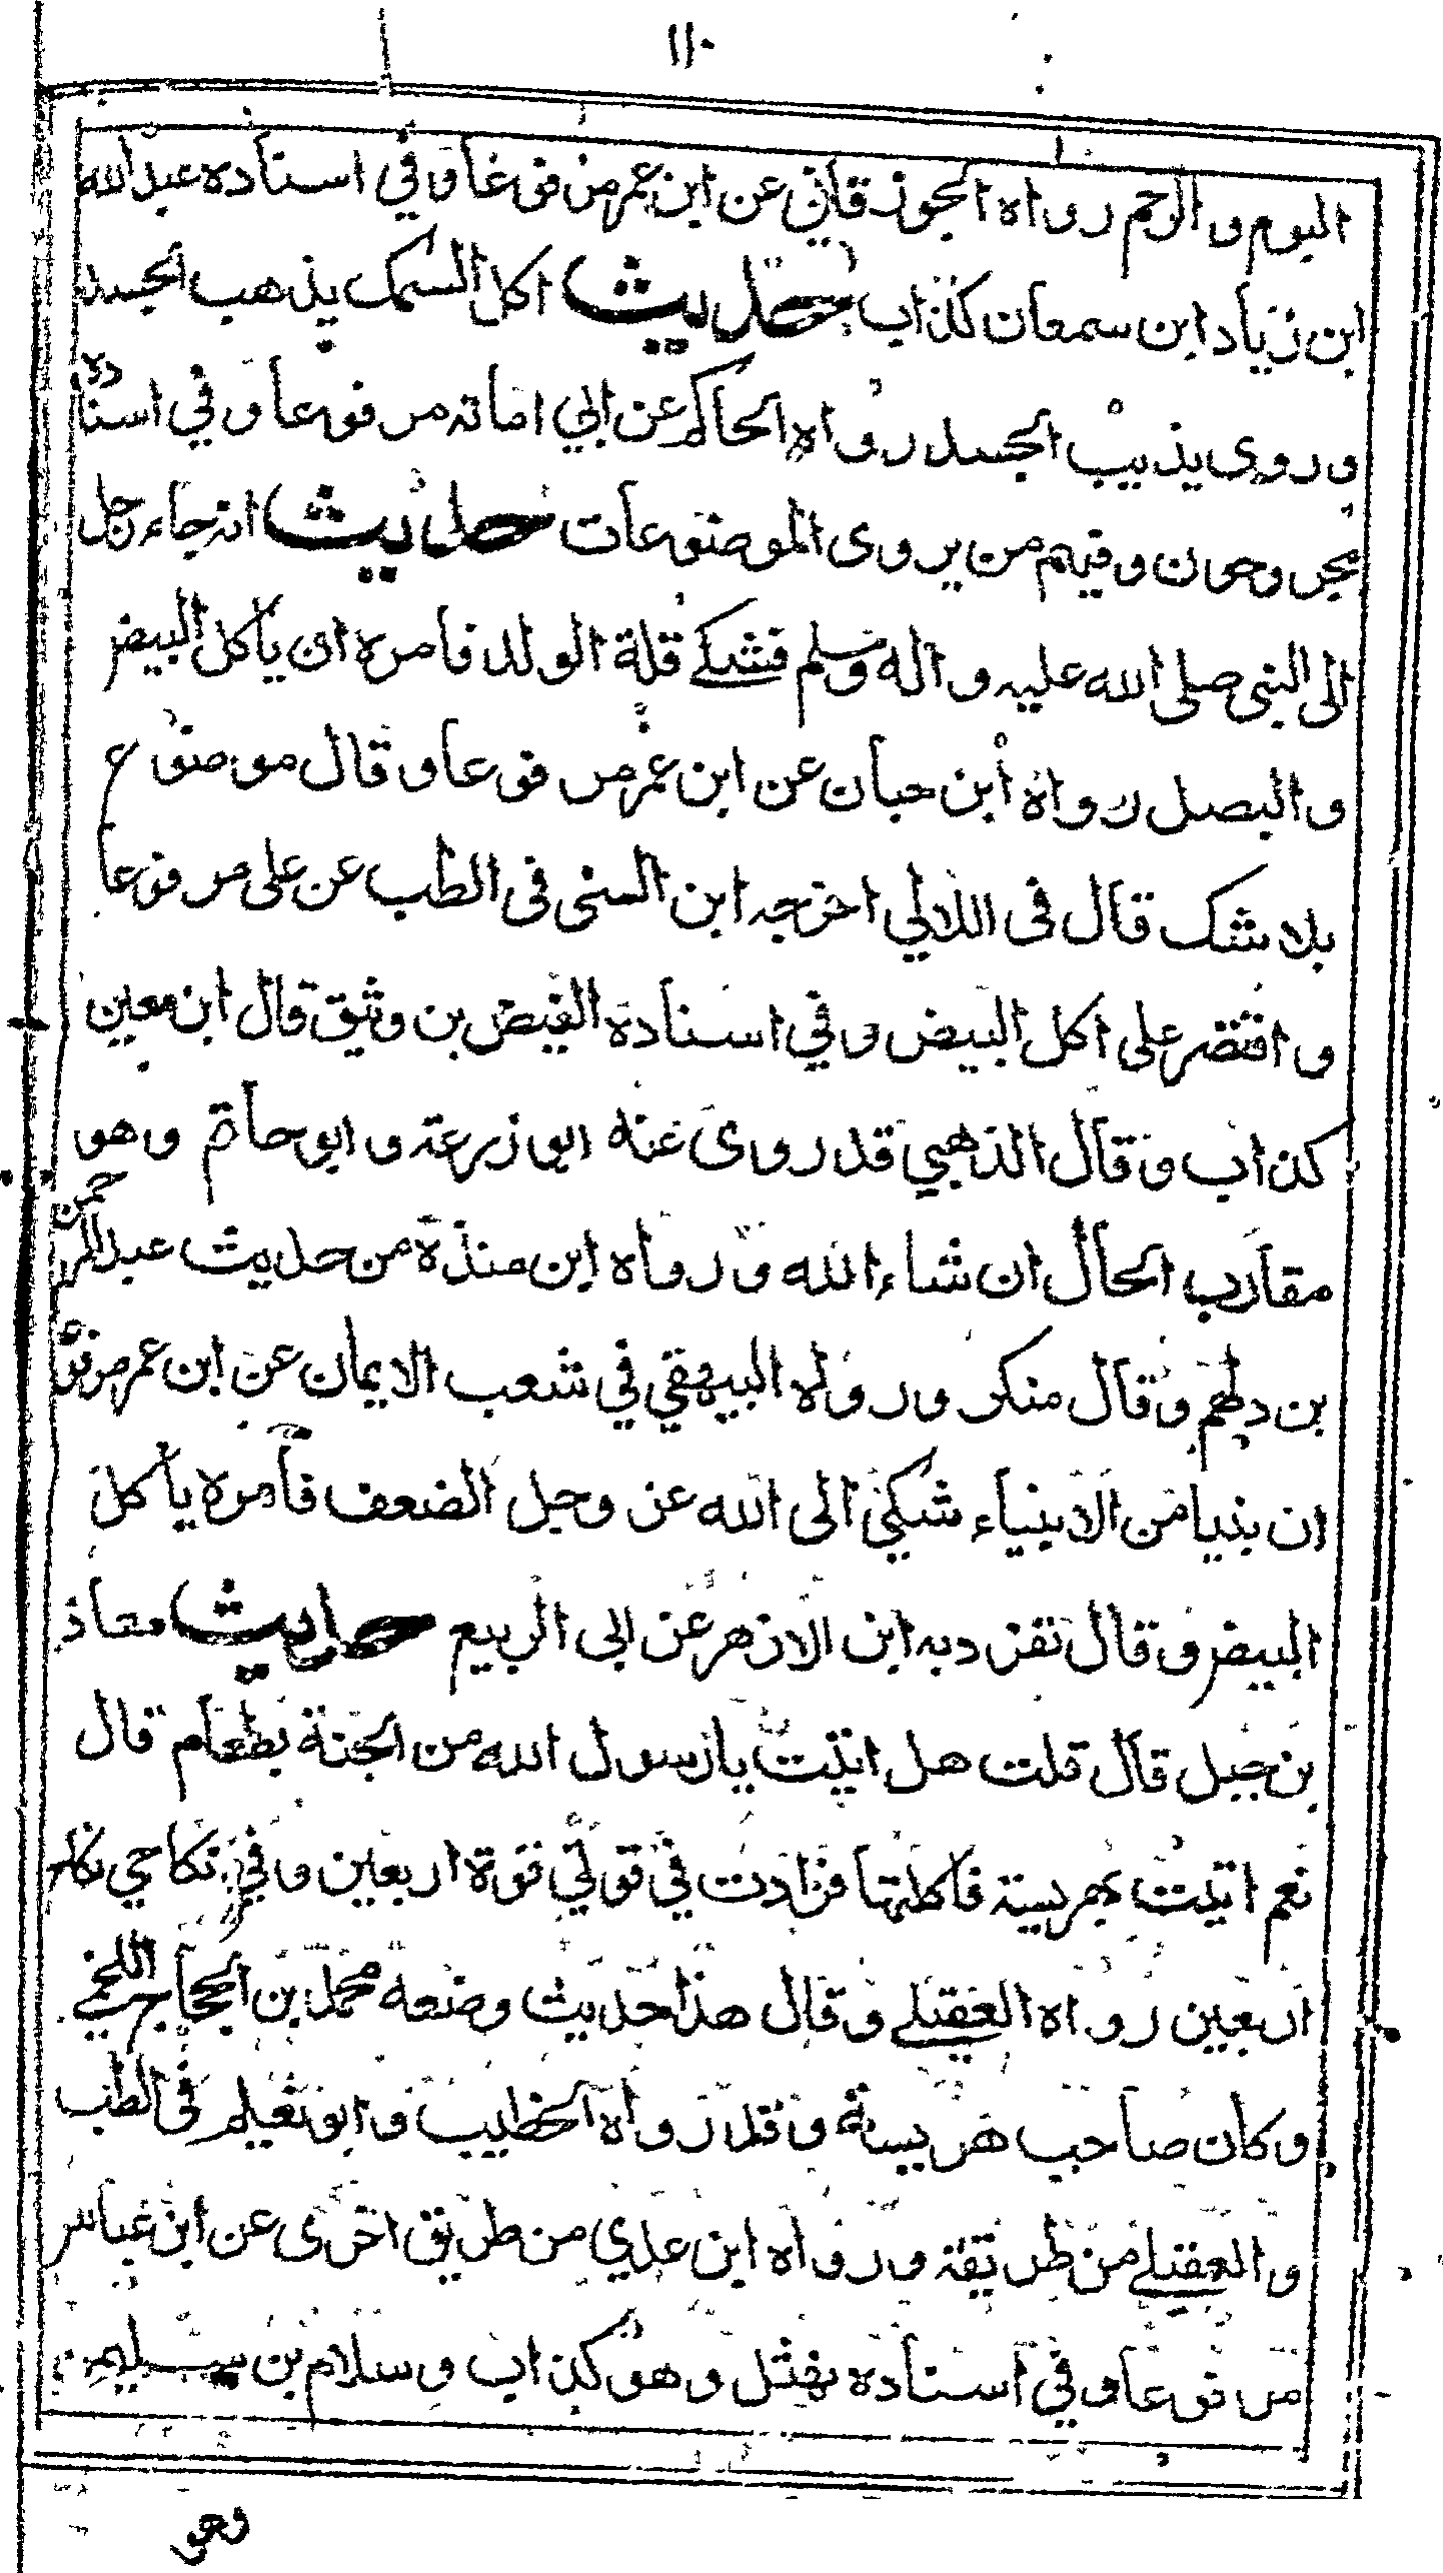 ١١٠
البوم والرخم رواه الجوزقاني عن ابن عمر مرفوعا وفي اسناده عبد الله
ابن زياد ابن سمعان كذاب حديث اكل السمك يذهب الجسد
وروى يذيب الجسد رواه الحاكم عن ابي امامة مرفوعا وفي اسناده
مجروحون وفيهم من يروى الموضوعات حديث انه جاء رجل
الى النبى صلى الله عليه واله وسلم فشكے قلة الولد فامره ان ياكل البيض
والبصل رواه ابن حبان عن ابن عمر مرفوعا وقال موضوع
بلا شك قال فى اللالي اخرجه ابن السنى فى الطب عن على مرفوعا
واقتصر على اكل البيض وفي اسناده الفيض بن وثيق قال ابن معين
كذاب وقال الذهبي قد روى عنه ابو زرعة وابو حاتم وهو
مقارب الحال ان شاء الله ورواه ابن مندة من حديث عبد الرحمن
بن دلهم وقال منكر ورواه البيهقي في شعب الايمان عن ابن عمر مرفوعا
ان نبيا من الانبياء شكى الى الله عز وجل الضعف فامره ياكل
البيض وقال تفرد به ابن الازهر عن ابى الربيع حديث معاذ
بن جبل قال قلت هل اتيت يا رسول الله من الجنة بطعام قال
نعم اتيت بهريسة فاكلتها فزادت في قوتي قوة اربعين وفي نكاحي نكاح
اربعين رواه العقيلے وقال هذا حديث وضعه محمد بن الحجاج اللخمے
وكان صاحب هريسة وقد رواه الخطيب وابو نعيم فى الطب
والعقيلے من طريقه ورواه ابن عدي من طريق اخرى عن ابن عباس
مرفوعا وفي اسناده نهشل وهو كذاب وسلام بن سليمن
وهو